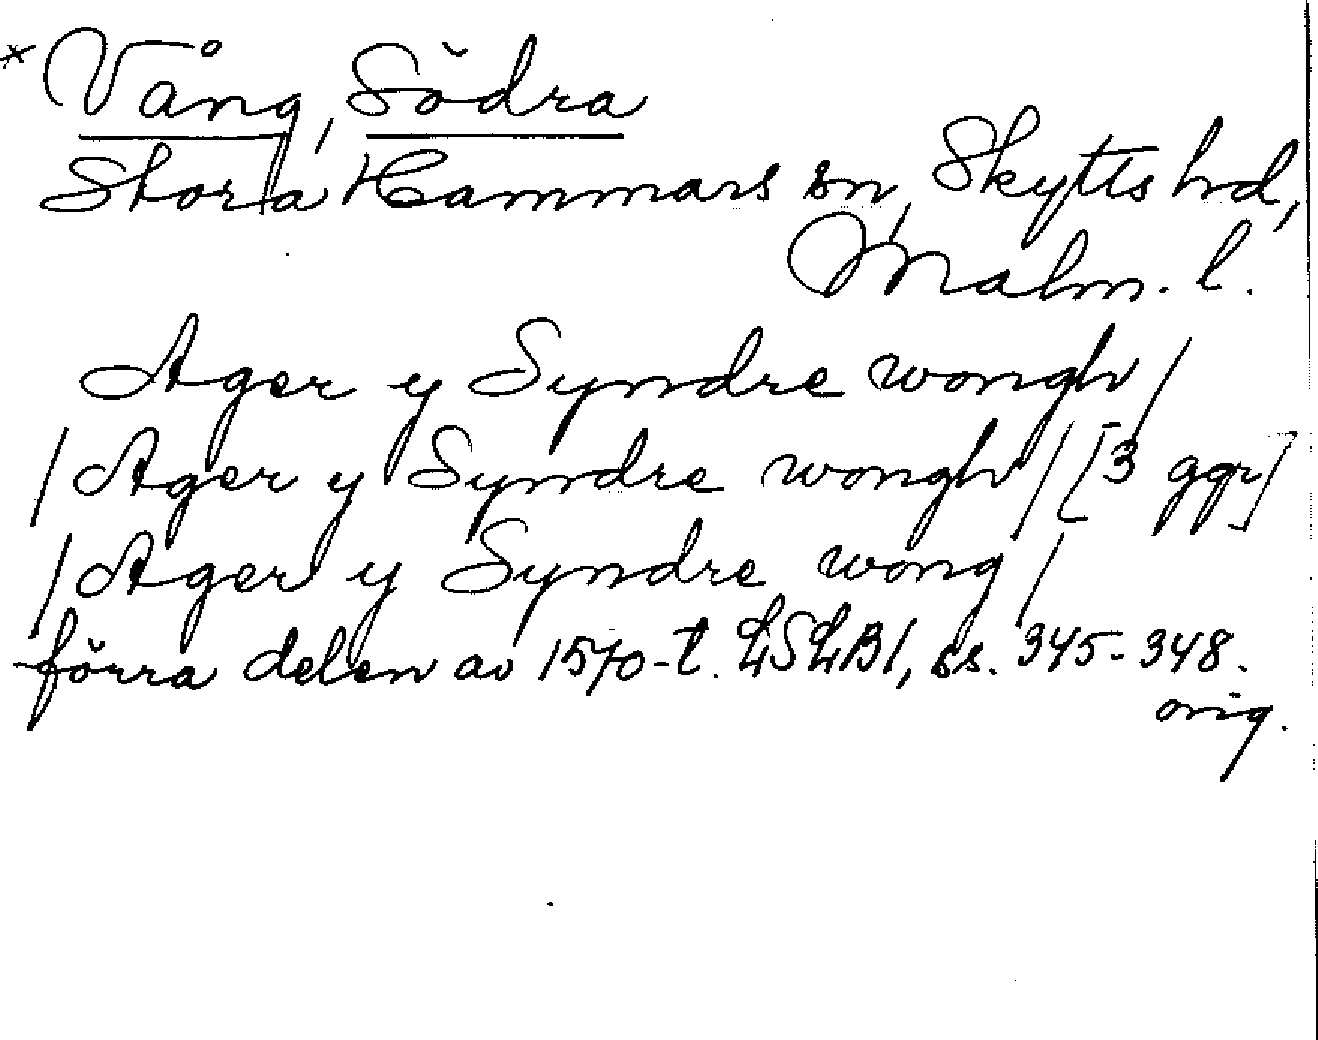 *Vång, Södra
Stora Hammars sn, Skytts hd,
Malm. l.
Ager y Syndre wongh/
/Ager y Syndre wongh/[3 ggr]
/Ager y Syndre wong/
förra delen av 1570-t. LSLB1, ss. 345-348.
orig.